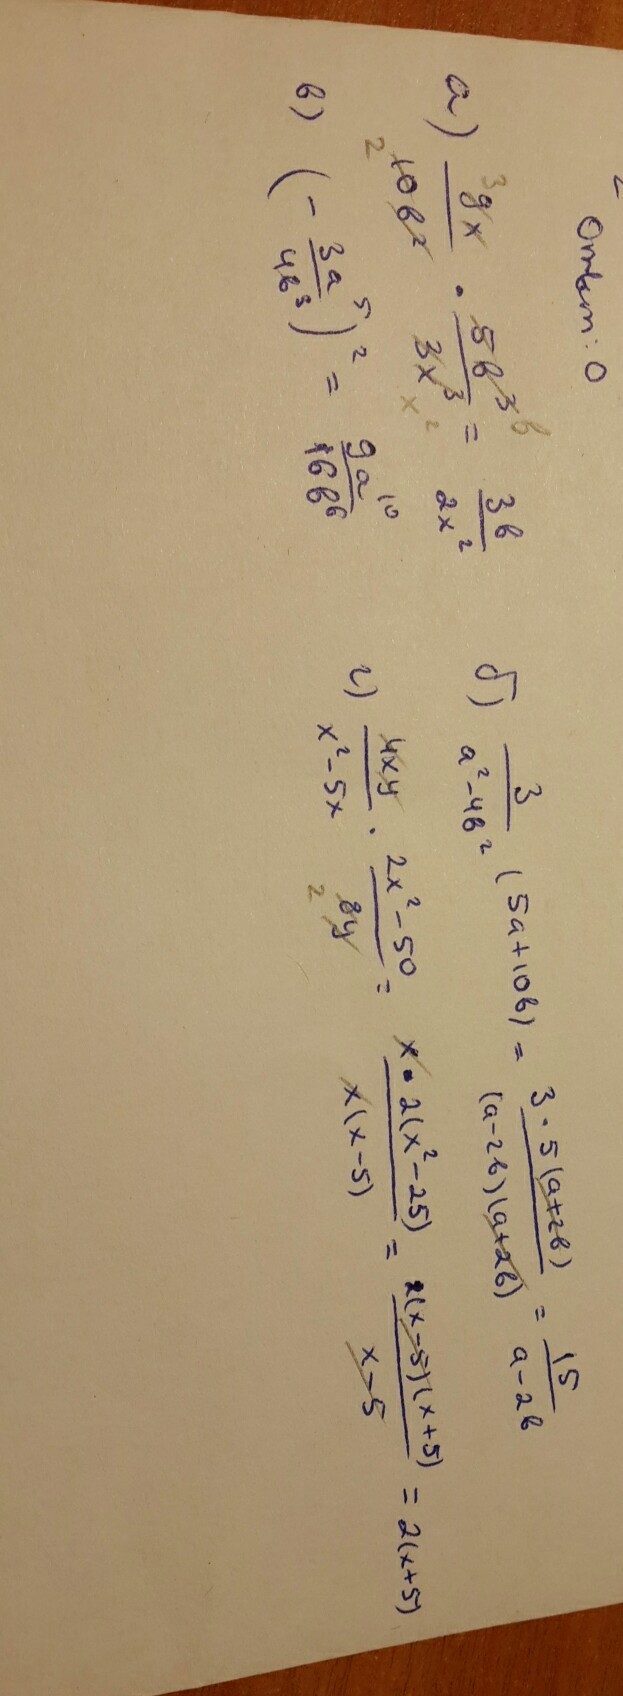 Ответ: 0
а) 9x/10b² · 5b³/3x³ = 3b/2x²
б) 3/(a²-4b²) (5a+10b) = 3·5(a+2b)/(a-2b)(a+2b) = 15/(a-2b)
в) (-3a⁵/4b³)² = 9a¹⁰/16b⁶
г) 4xy/(x²-5x) · (2x²-50)/8y = x·2(x²-25)/x(x-5) = 2(x-5)(x+5)/(x-5) = 2(x+5)